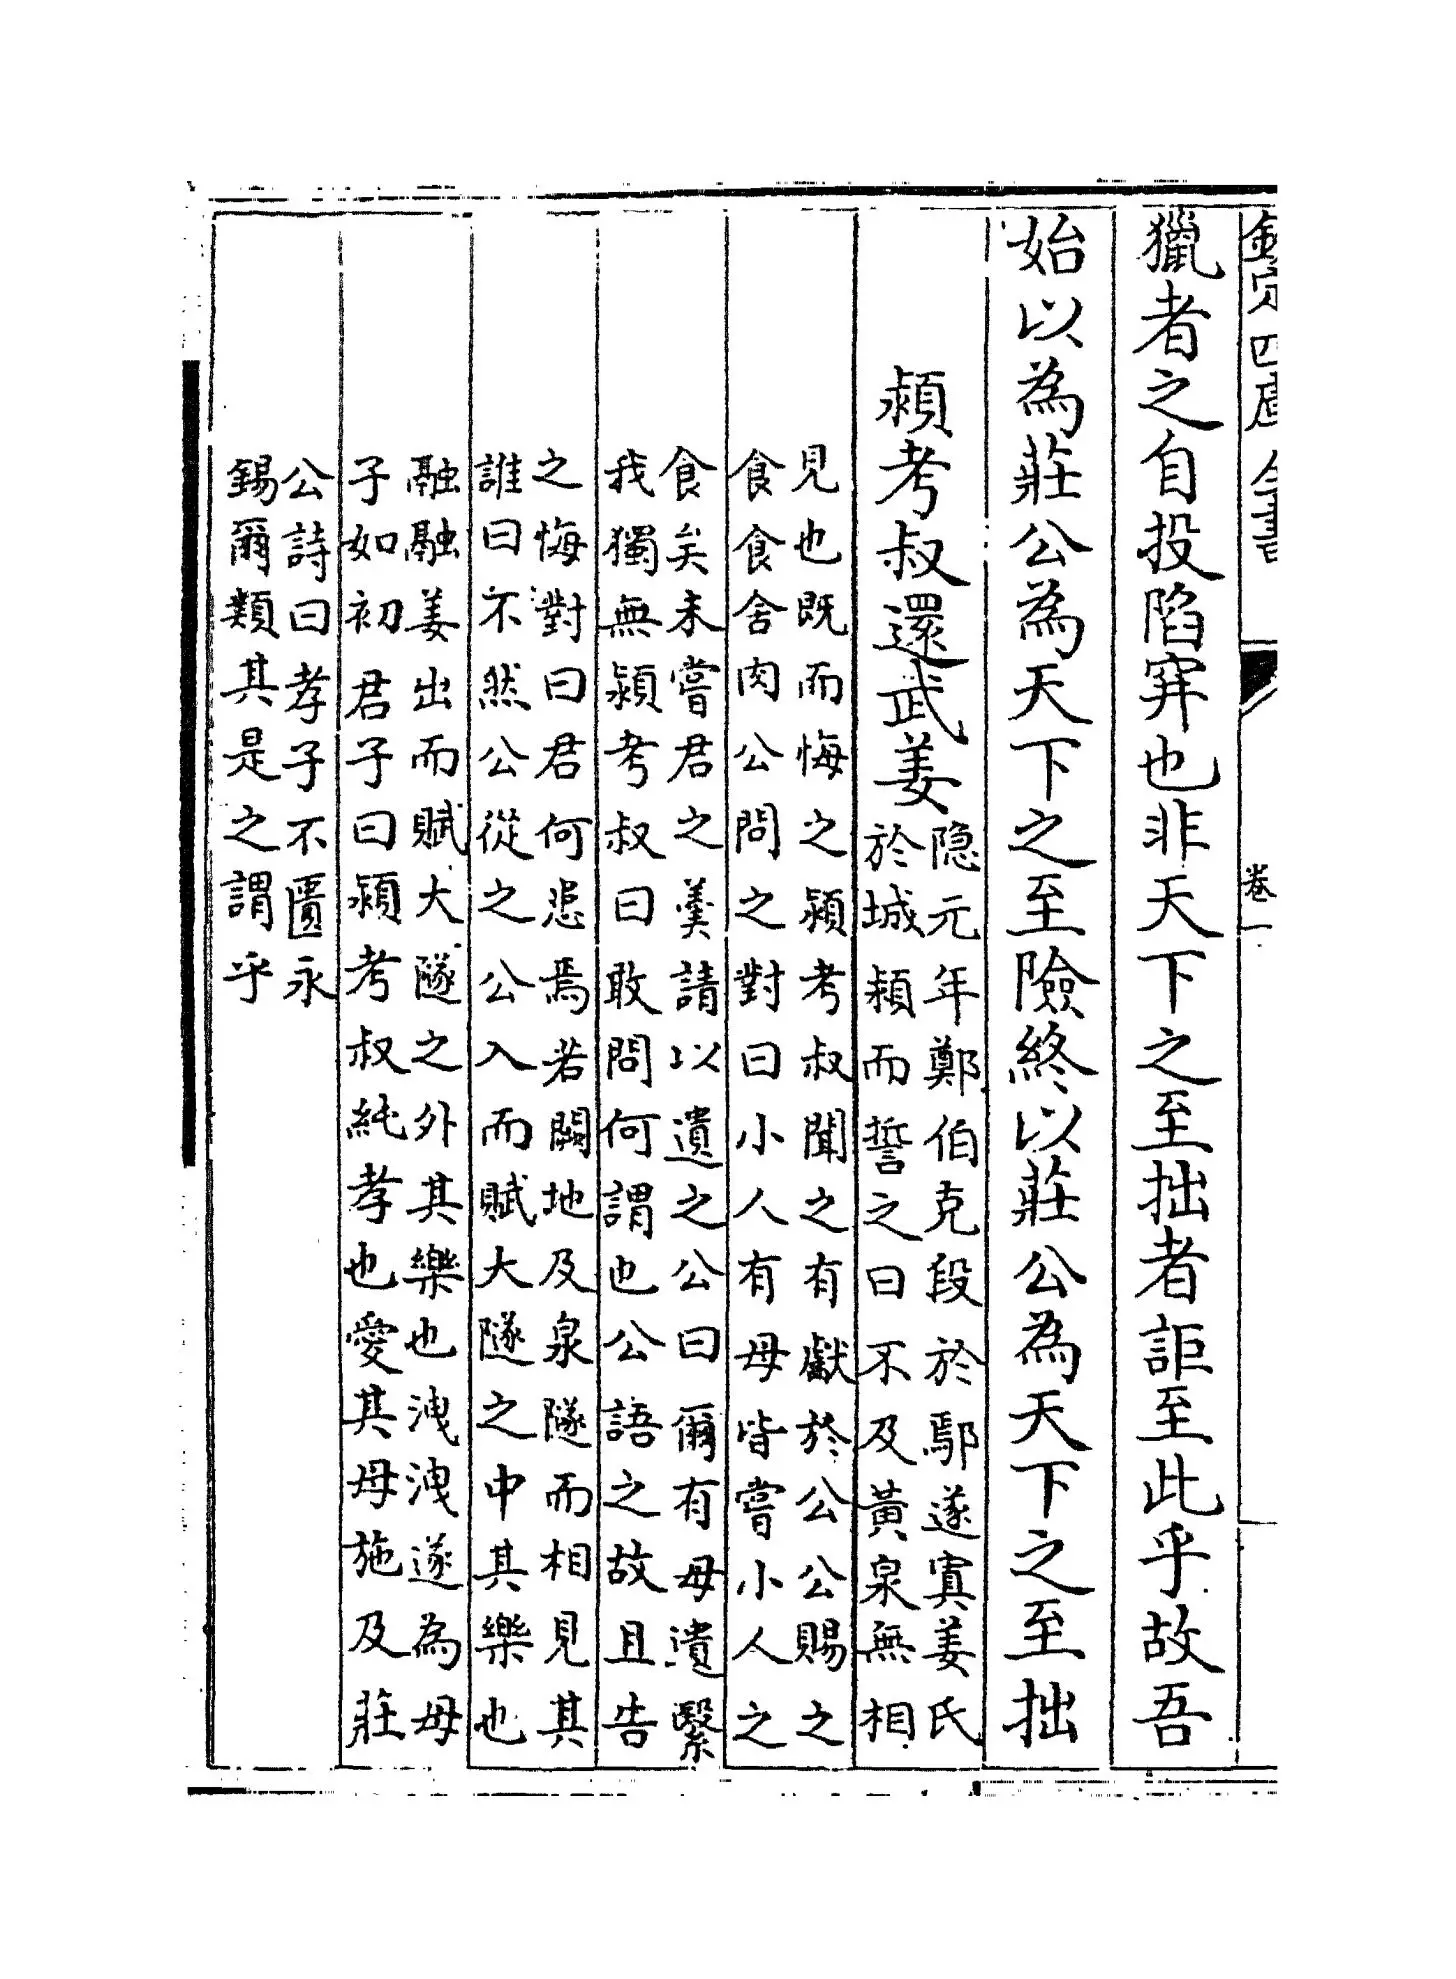 欽定四庫全書
卷一
獵者之自投陷穽也非天下之至拙者詎至此乎故吾
始以為莊公為天下之至險終以莊公為天下之至拙
潁考叔還武姜
隐元年鄭伯克段於鄢遂寘姜氏
於城潁而誓之曰不及黃泉無相
見也既而悔之潁考叔聞之有獻於公公賜之
食食舍肉公問之對曰小人有母皆嘗小人之
食矣未嘗君之羹請以遺之公曰爾有母遺繄
我獨無潁考叔曰敢問何謂也公語之故且告
之悔對曰君何患焉若闕地及泉隧而相見其
誰曰不然公從之公入而賦大隧之中其樂也
融融姜出而賦大隧之外其樂也洩洩遂為母
子如初君子曰潁考叔純孝也愛其母施及莊
公詩曰孝子不匱永
錫爾類其是之謂乎